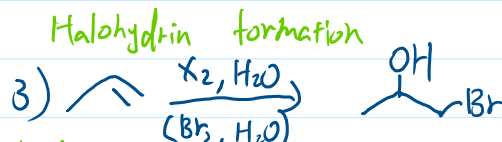 Halohydrin formation
3) X2, H2O
(Br2, H2O)
OH
Br